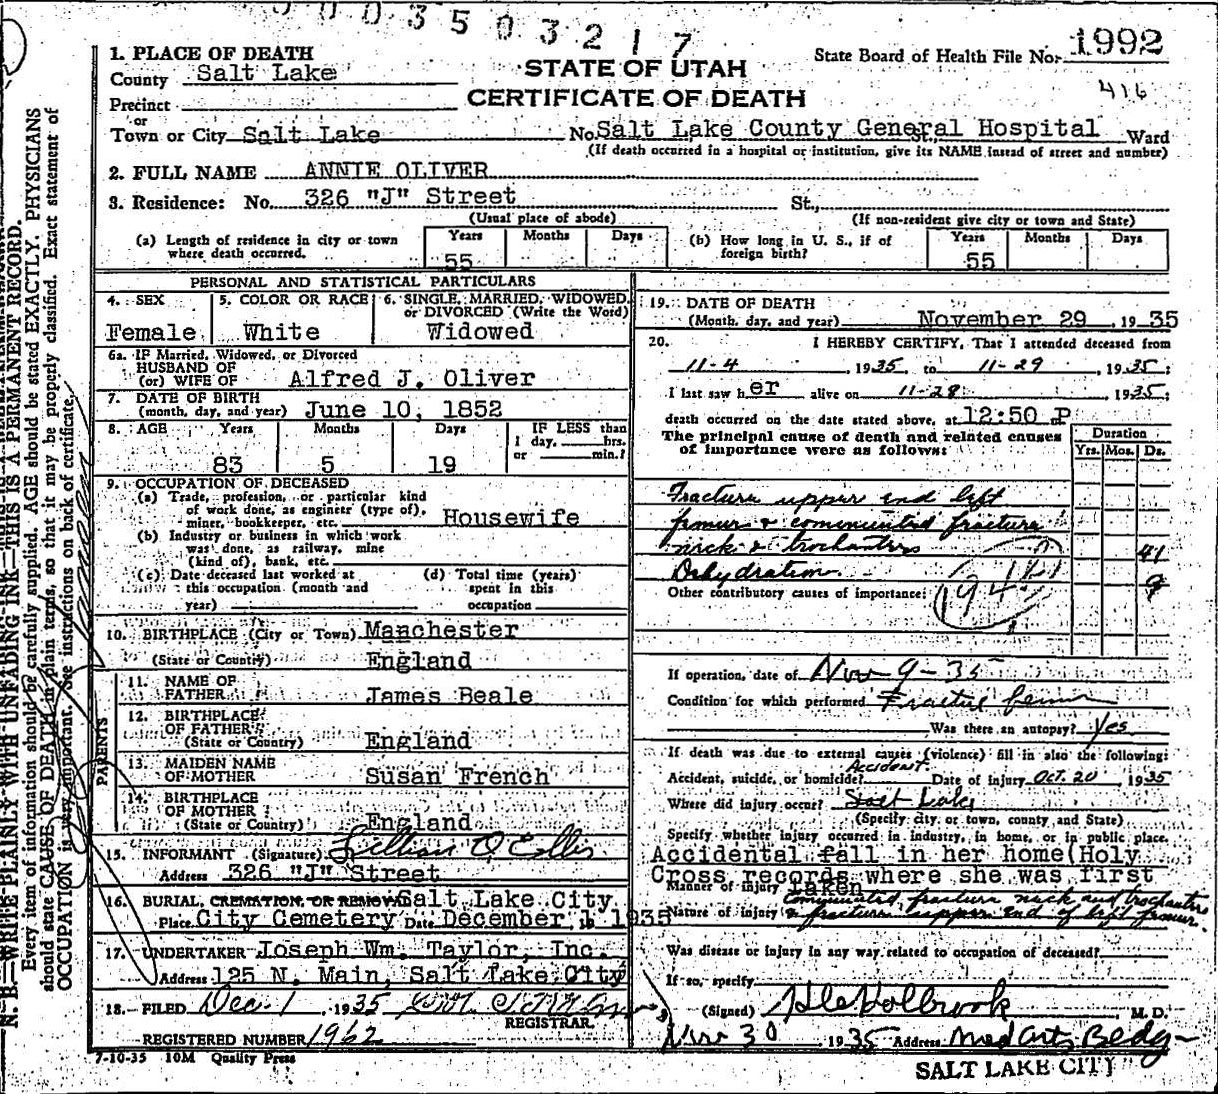 00035 03217
State Board of Health File No. 1992
416
STATE OF UTAH
CERTIFICATE OF DEATH
1. PLACE OF DEATH
County Salt Lake
Precinct
or
Town or City Salt Lake No. Salt Lake County General Hospital St., Ward
(If death occurred in a hospital or institution, give its NAME instead of street and number)
2. FULL NAME ANNIE OLIVER
3. Residence: No. 326 "J" Street St.,
(Usual place of abode) (If non-resident give city or town and State)
(a) Length of residence in city or town where death occurred. Years 55 Months Days
(b) How long in U. S., if of foreign birth? Years 55 Months Days
PERSONAL AND STATISTICAL PARTICULARS
4. SEX Female
5. COLOR OR RACE White
6. SINGLE, MARRIED, WIDOWED, or DIVORCED (Write the Word) Widowed
6a. IF Married, Widowed, or Divorced
HUSBAND OF
(or) WIFE OF Alfred J. Oliver
7. DATE OF BIRTH
(month, day, and year) June 10, 1852
8. AGE Years 83 Months 5 Days 19 IF LESS than 1 day, hrs. or min.?
9. OCCUPATION OF DECEASED
(a) Trade, profession, or particular kind
of work done, as engineer (type of),
miner, bookkeeper, etc. Housewife
(b) Industry or business in which work
was done, as railway, mine
(kind of), bank, etc.
(c) Date deceased last worked at
this occupation (month and
year)
(d) Total time (years)
spent in this
occupation
10. BIRTHPLACE (City or Town) Manchester
(State or Country) England
PARENTS
11. NAME OF
FATHER James Beale
12. BIRTHPLACE
OF FATHER
(State or Country) England
13. MAIDEN NAME
OF MOTHER Susan French
14. BIRTHPLACE
OF MOTHER
(State or Country) England
15. INFORMANT (Signature) Lillian O. Ellis
Address 326 "J" Street
16. BURIAL, CREMATION, OR REMOVAL Salt Lake City
Place City Cemetery Date December 1, 1935
17. UNDERTAKER Joseph Wm. Taylor, Inc.
Address 125 N. Main, Salt Lake City
18. FILED Dec. 1, 1935
REGISTRAR.
REGISTERED NUMBER 1962
7-10-35 10M Quality Press
19. DATE OF DEATH
(Month, day, and year) November 29, 1935
20. I HEREBY CERTIFY, That I attended deceased from
11-4, 1935, to 11-29, 1935;
I last saw her alive on 11-28, 1935;
death occurred on the date stated above, at 12:50 P
The principal cause of death and related causes
of importance were as follows:
Duration
Yrs. Mos. Ds.
Fracture upper end left
femur & comminuted fracture
neck & trochanters 41
Dehydration 9
Other contributory causes of importance:
If operation, date of Nov 9-35
Condition for which performed Fracture femur
Was there an autopsy? Yes
If death was due to external causes (violence) fill in also the following:
Accident, suicide, or homicide? Accident Date of injury Oct. 20 1935
Where did injury occur? Salt Lake
(Specify city, or town, county and State)
Specify whether injury occurred in industry, in home, or in public place.
Accidental fall in her home (Holy
Cross records where she was first
Manner of injury taken
Nature of injury Comminuted fracture neck and trochanters
& fracture upper end of left femur.
Was disease or injury in any way related to occupation of deceased?
If so, specify
(Signed) H Le Holbrook M. D.
Nov 30 1935 Address Med Arts Bldg-
SALT LAKE CITY
N. B.—WRITE PLAINLY WITH UNFADING INK—THIS IS A PERMANENT RECORD.
Every item of information should be carefully supplied. AGE should be stated EXACTLY. PHYSICIANS
should state CAUSE OF DEATH in plain terms, so that it may be properly classified. Exact statement of
OCCUPATION is very important. See instructions on back of certificate.